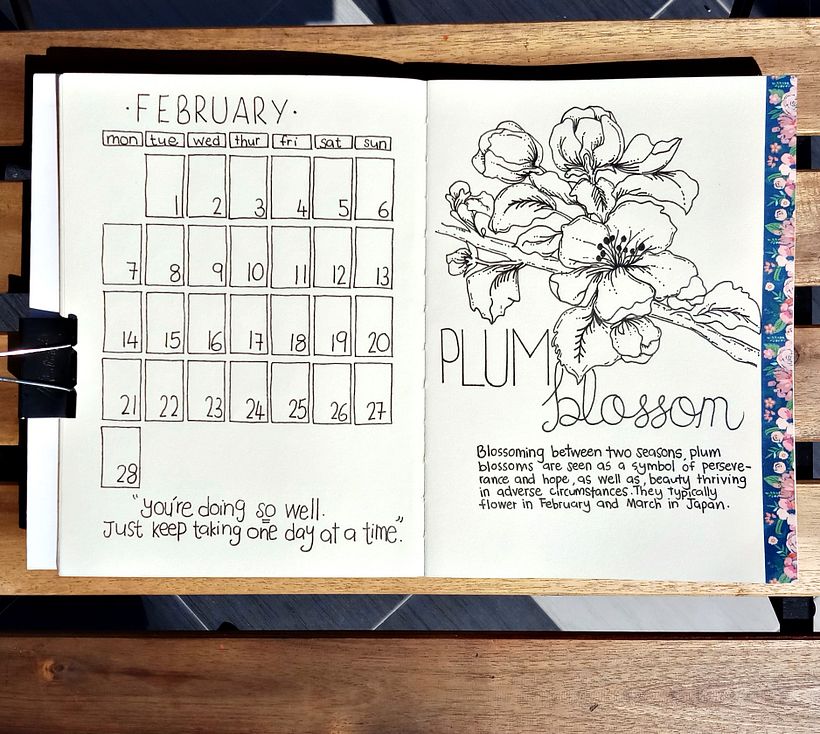 ·FEBRUARY·
mon tue wed thur fri sat sun
1 2 3 4 5 6
7 8 9 10 11 12 13
14 15 16 17 18 19 20
21 22 23 24 25 26 27
28
"you're doing so well.
Just keep taking one day at a time."
PLUM
blossom
Blossoming between two seasons, plum
blossoms are seen as a symbol of perseve-
rance and hope, as well as, beauty thriving
in adverse circumstances. They typically
flower in February and March in Japan.